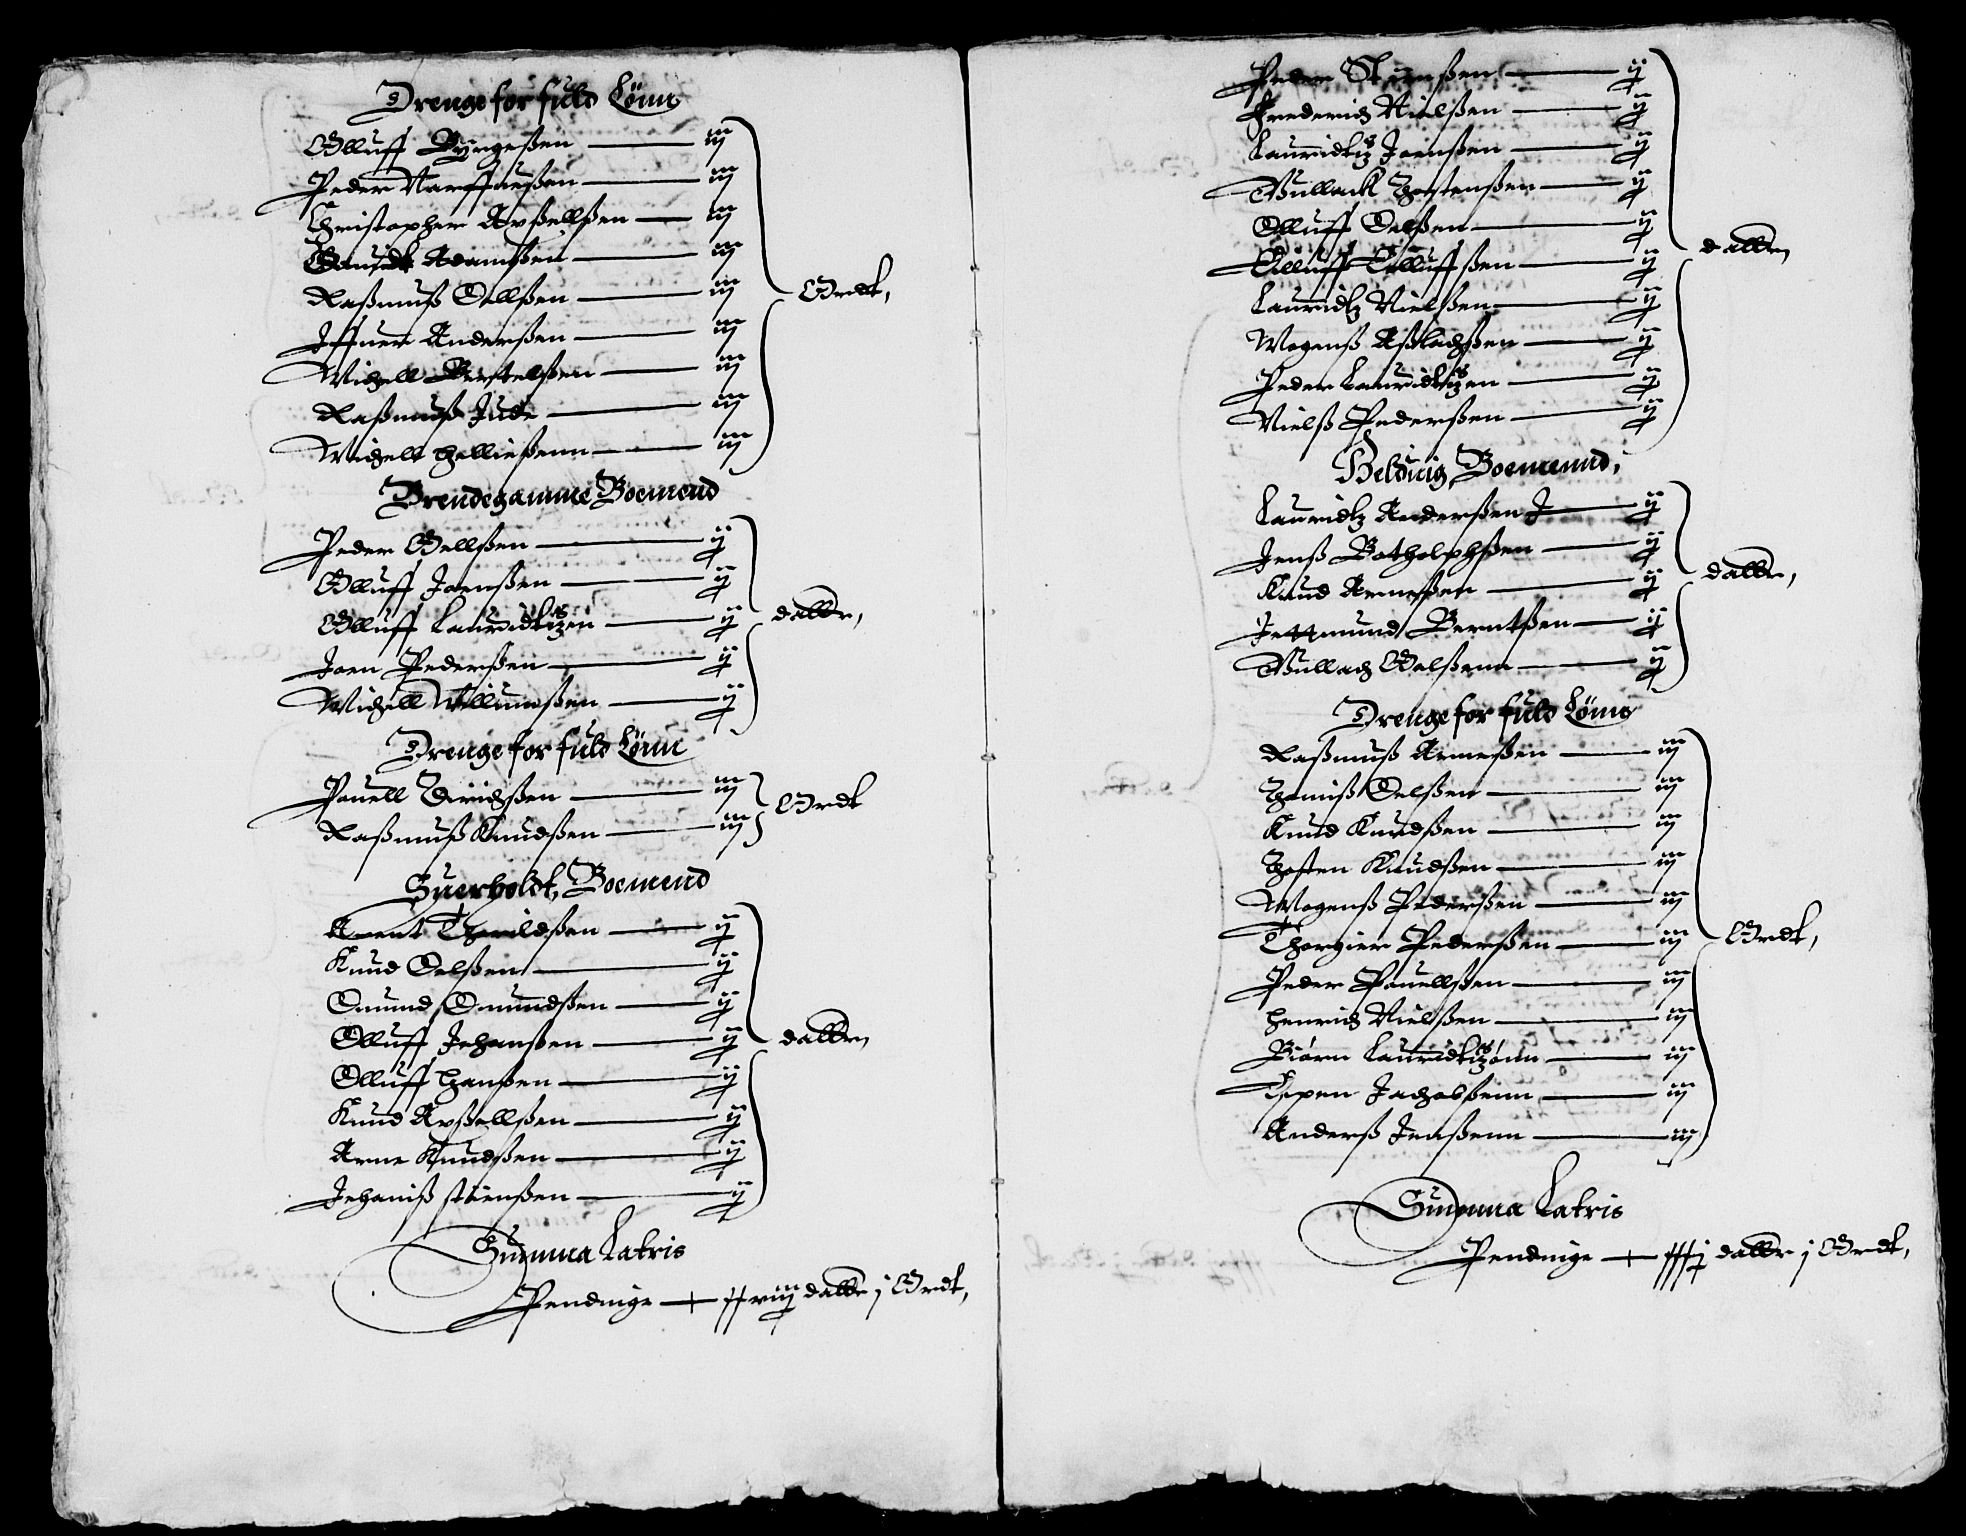 Drenge for fuld Lønn
Olluff Byrgeßen — iiij
Peder Narffueßen — iiij
Christopher Axßellßen — iiij
Benidt Adamßen — iiij
Raßmuß Oellßen — iiij
Iffuer Anderßen — iiij
Michell Bertelßen — iiij
Raßmuß Jude — iiij
Michell Helliesenn — iiij
Ordt,
Brendegamme Boemend
Peder Oellßen — ij
Olluff Joenßen — ij
Olluff Lauridtzen — ij
Joen Pederßen — ij
Michell Willumßen — ij
daller,
Drenge for fuld Lønn
Pouell Dirichßen — iiij
Raßmuß Knudßen — iiij
Ordt
Suerboldt, Boemend
Arent Thorildßen — ij
Knud Oelßen — ij
Omund Omundßen — ij
Olluff Johanßen — ij
Olluff Hanßen — ij
Knud Axßellßen — ij
Arne Knudßen — ij
Johaniß Stienßen — ij
daller,
Summa Latris
Pendinge — daller j Ordt,
Peder Stienßen — ij
Frederich Nielßen — ij
Lauridtz Joenßen — ij
Gullack Tostenßen — ij
Olluff Oelßen — ij
Olluff Olluffßen — ij
Lauridtz Nielßen — ij
Mogenß Aßlachßen — ij
Peder Lauridtzen — ij
Nielß Pederßen — ij
daller,
Heldwig Boemennd,
Lauridtz Anderßen — ij
Jenß Botholphßen — ij
Knud Arneßen — ij
Jettmund Berntßen — ij
Gullach Oelßenn — ij
daller,
Drenge for fuld Lønn
Raßmuß Arneßen — iiij
Thomiß Oelßen — iiij
Knud Knudßen — iiij
Tosten Knudßen — iiij
Mogenß Pederßen — iiij
Thorgier Pederßen — iiij
Peder Pouellßen — iiij
Henrich Nielßen — iiij
Biørn Lauridtzønn — iiij
Espen Jachobßenn — iiij
Anderß Jenßenn — iiij
Ordt,
Summa Latris
Pendinge — daller j Ordt,